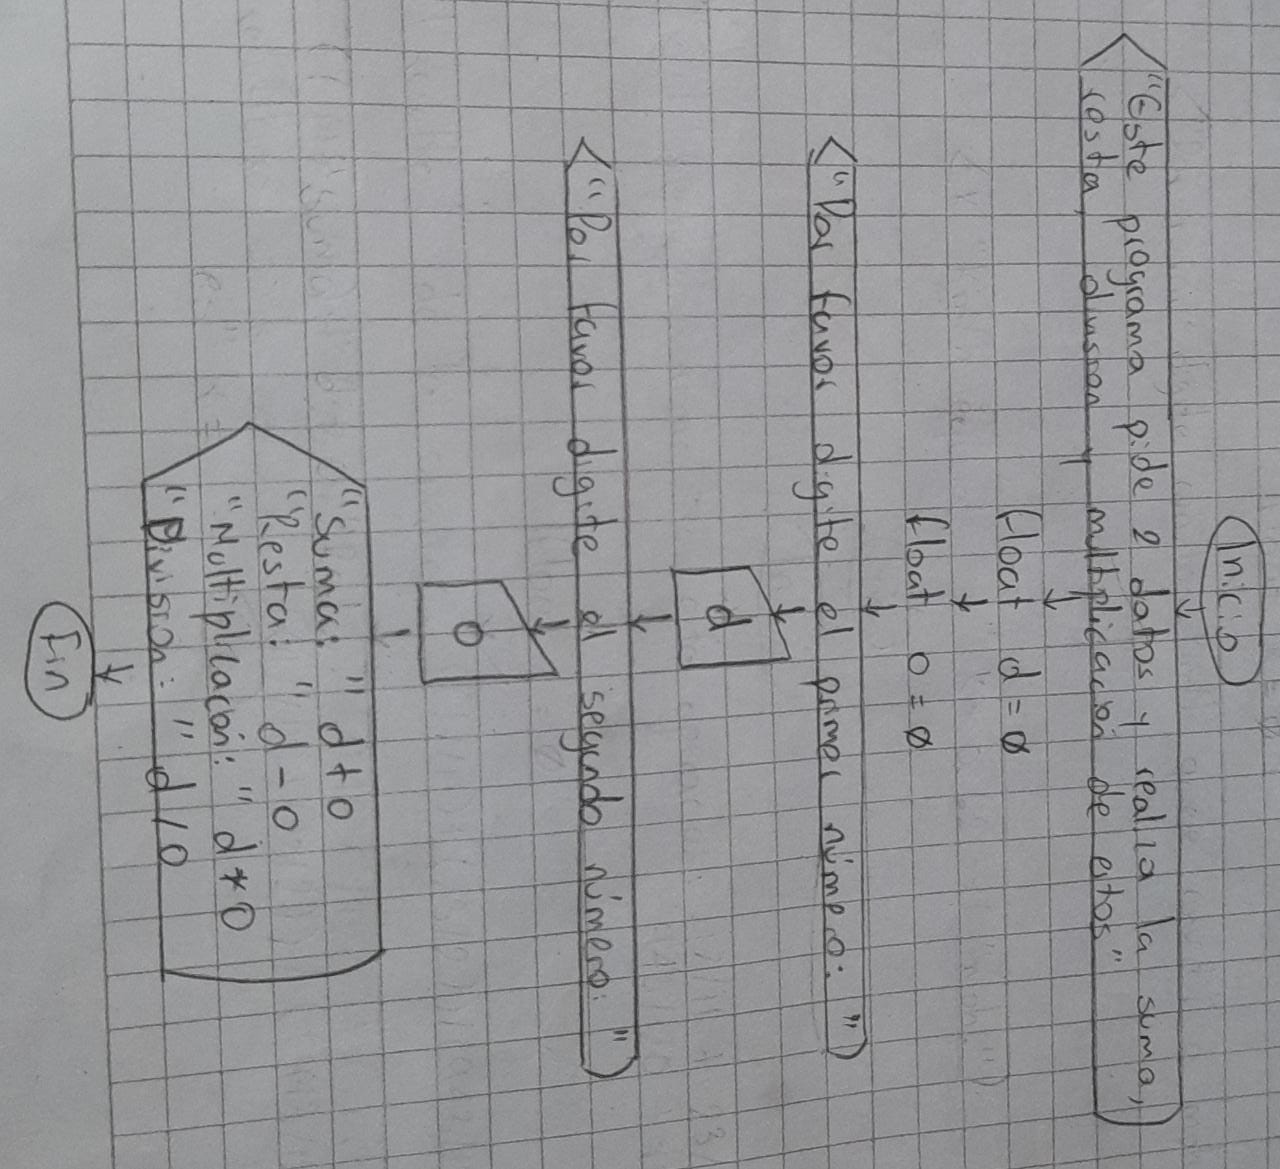 Inicio
"Este programa pide 2 datos y realiza la suma,
resta, division y multiplicación de estos"
float d = ø
float o = ø
"Por favor digite el primer número: "
d
"Por favor digite el segundo número: "
o
"Suma: " d + o
"Resta: " d - o
"Multiplicacón: " d * o
"Division: " d / o
Fin